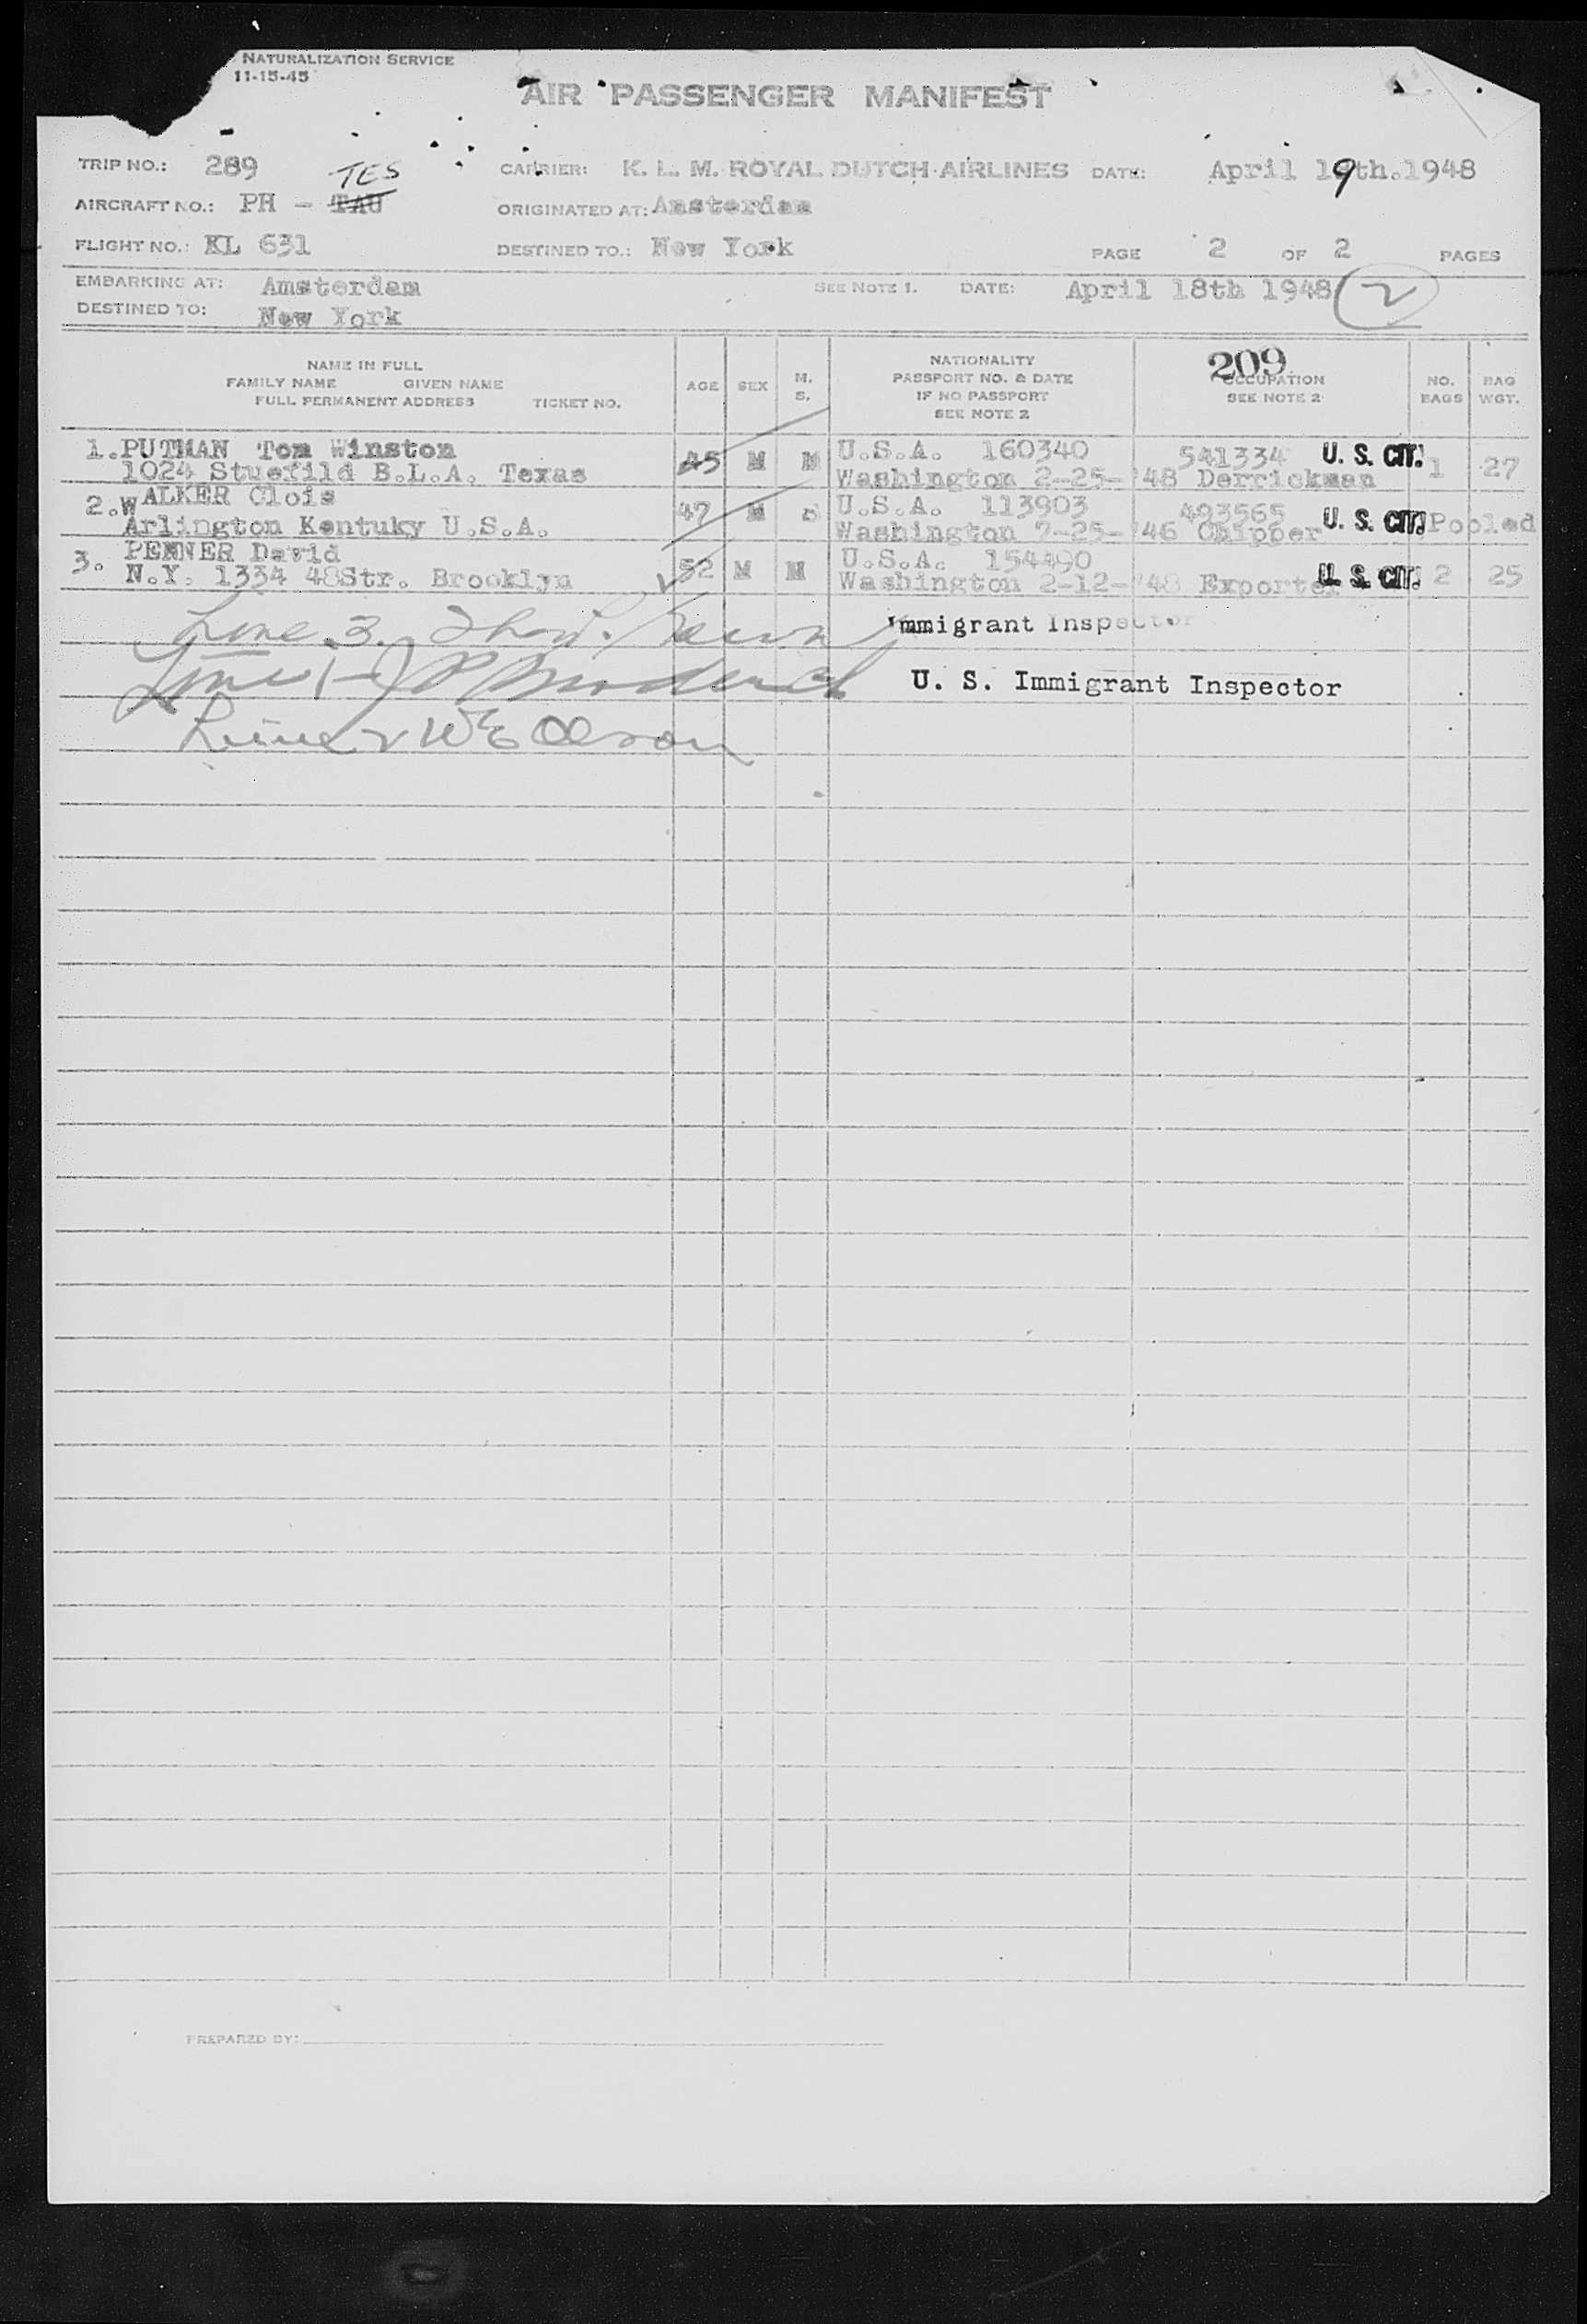 NATURALIZATION SERVICE
11-15-45
AIR PASSENGER MANIFEST
TRIP NO.: 289 CARRIER: K. L. M. ROYAL DUTCH AIRLINES DATE: April 19th.1948
TES
AIRCRAFT NO.: PH - TAU ORIGINATED AT: Amsterdam
FLIGHT NO.: KL 631 DESTINED TO.: New York PAGE 2 OF 2 PAGES
EMBARKING AT: Amsterdam SEE NOTE 1. DATE: April 18th 1948 2
DESTINED TO: New York
209
NAME IN FULL
FAMILY NAME GIVEN NAME
FULL PERMANENT ADDRESS TICKET NO.
AGE SEX M. S.
NATIONALITY
PASSPORT NO. & DATE
IF NO PASSPORT
SEE NOTE 2
OCCUPATION
SEE NOTE 2
NO. BAGS
BAG WGT.
1.PUTMAN Tom Winston 45 M M U.S.A. 160340 541334 U. S. CIT. 1 27
1024 Stuefild B.L.A. Texas Washington 2-25-'48 Derrickman
2.WALKER Clois 47 M S U.S.A. 113903 493565 U. S. CIT. Pooled
Arlington Kentuky U.S.A. Washington 7-25-'46 Chipper
3. PENNER David 52 M M U.S.A. 154490 U. S. CIT. 2 25
N.Y. 1334 48Str. Brooklyn Washington 2-12-'48 Exporter
Line 3. Immigrant Inspector
Line 1- U. S. Immigrant Inspector
Line 2 W E Olson
PREPARED BY: